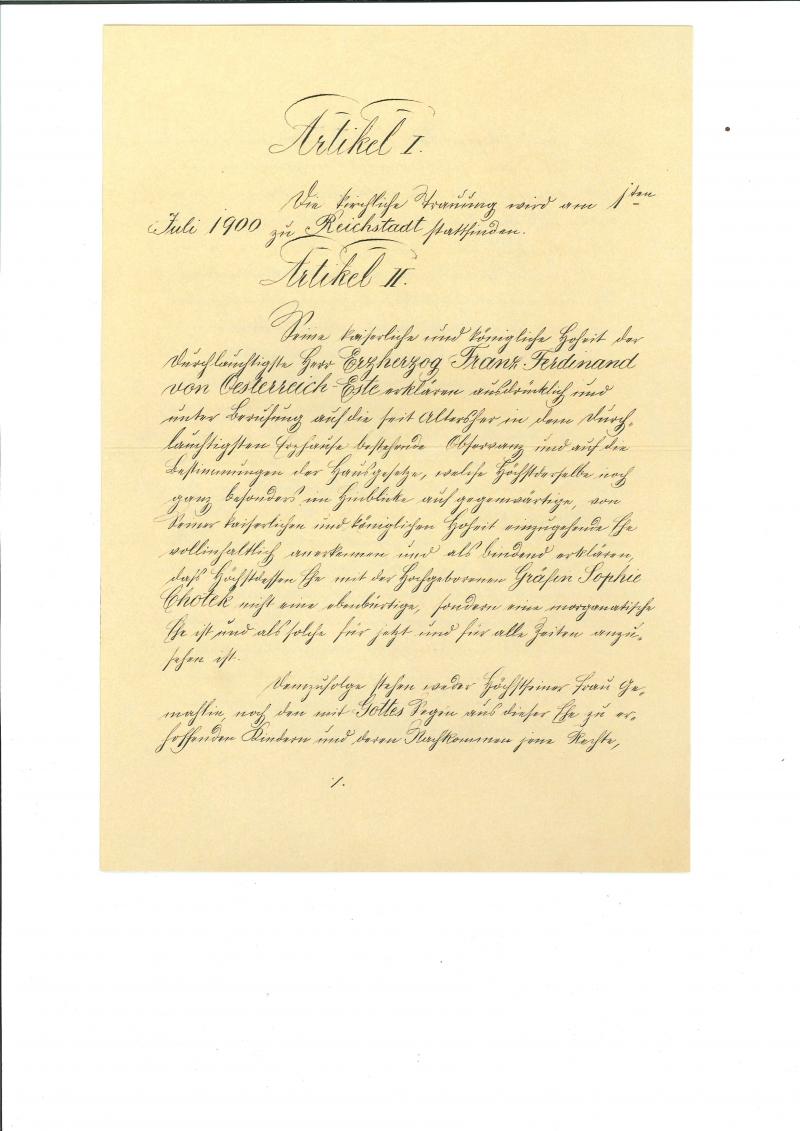 Artikel I.
Die kirchliche Trauung wird am 1ten
Juli 1900 zu Reichstadt stattfinden.
Artikel II.
Seine kaiserliche und königliche Hoheit der
durchlauchtigste Herr Erzherzog Franz Ferdinand
von Oesterreich-Este erklären ausdrücklich und
unter Berufung auf die seit Altersher in dem Durch-
lauchtigsten Erzhause bestehende Observanz und auf die
Bestimmungen der Hausgesetze, welche Höchstderselbe noch
ganz besonders im Hinblicke auf gegenwärtige, von
Seiner kaiserlichen und königlichen Hoheit einzugehende Ehe
vollinhaltlich anerkennen und als bindend erklären,
daß Höchstdessen Ehe mit der Hochgeborenen Gräfin Sophie
Chotek nicht eine ebenbürtige, sondern eine morganatische
Ehe ist und als solche für jetzt und für alle Zeiten anzu-
sehen ist.
Demzufolge stehen weder Höchstseiner Frau Ge-
mahlin, noch den mit Gottes Segen aus dieser Ehe zu er-
hoffenden Kindern und deren Nachkommen jene Rechte,
./.